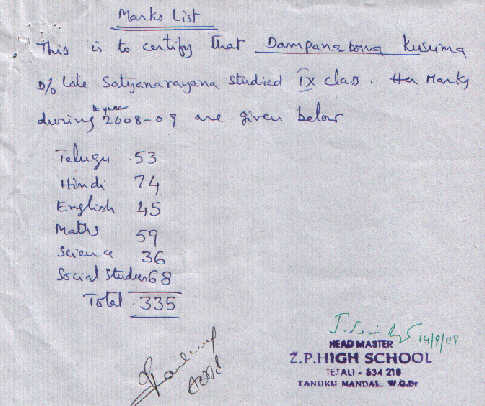 Marks List
This is to certify that Dampanaboina Kusuma
D/o Late Satyanarayana studied IX class. Her Marks
during the year 2008-09 are given below
Telugu 53
Hindi 74
English 45
Maths 59
Science 36
Social Studies 68
Total 335
14/9/09
HEAD MASTER
Z.P.HIGH SCHOOL
TETALI - 534 218
TANUKU MANDAL, W.G.Dt